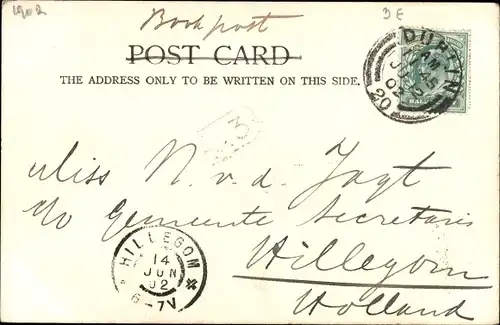 1902
3 E
Book post
POST CARD
THE ADDRESS ONLY TO BE WRITTEN ON THIS SIDE.
DUBLIN
AM
11 45
JU
02
20
3
Miss N. v. d. Jagt
c/o Gemeente Secretaris
Hillegom
Holland
HILLEGOM
14
JUN
02
6-7V